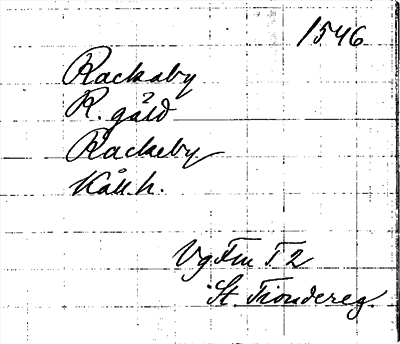 1546
Rackaby
R. gäld
Rackeby
Kåll. h.
Vg Fm T 2
St. Tiondereg.